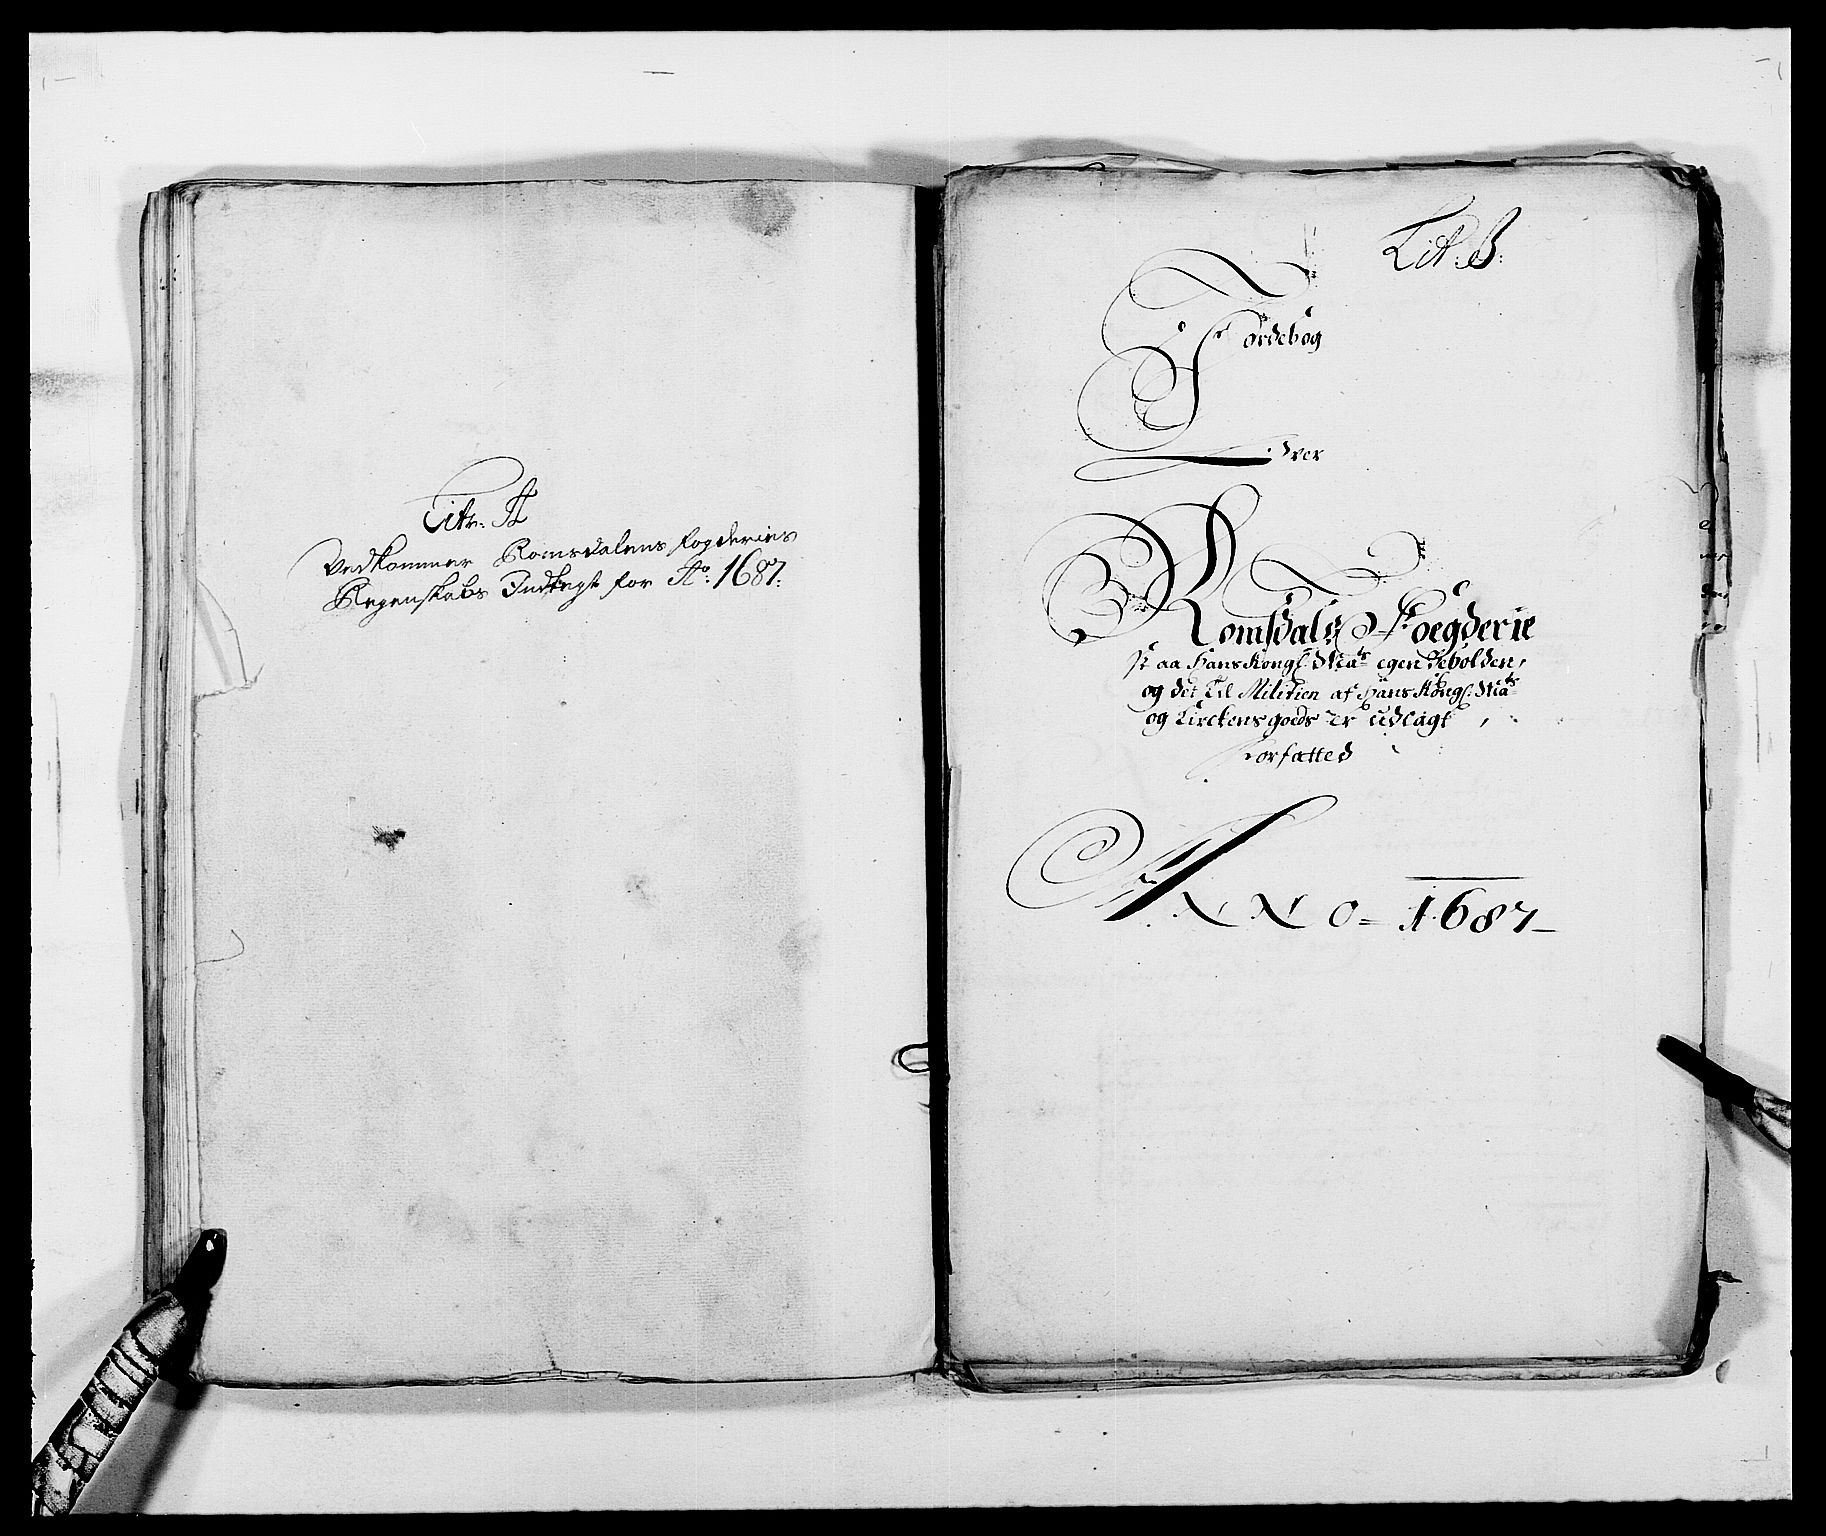 Litr: A
Vedkommer Romsdalens fogderies
Regenskabs Indtegt for Ao: 1687:
Lit: B:
Jordebog
Over
Romsdals Foegderie
Paa Hans Kongl: Mats egen Beholden,
og det Til Militien af Hans Kongl: Mats
og Kirckens goeds er udlagt,
Forfatted
ANNO = 1687